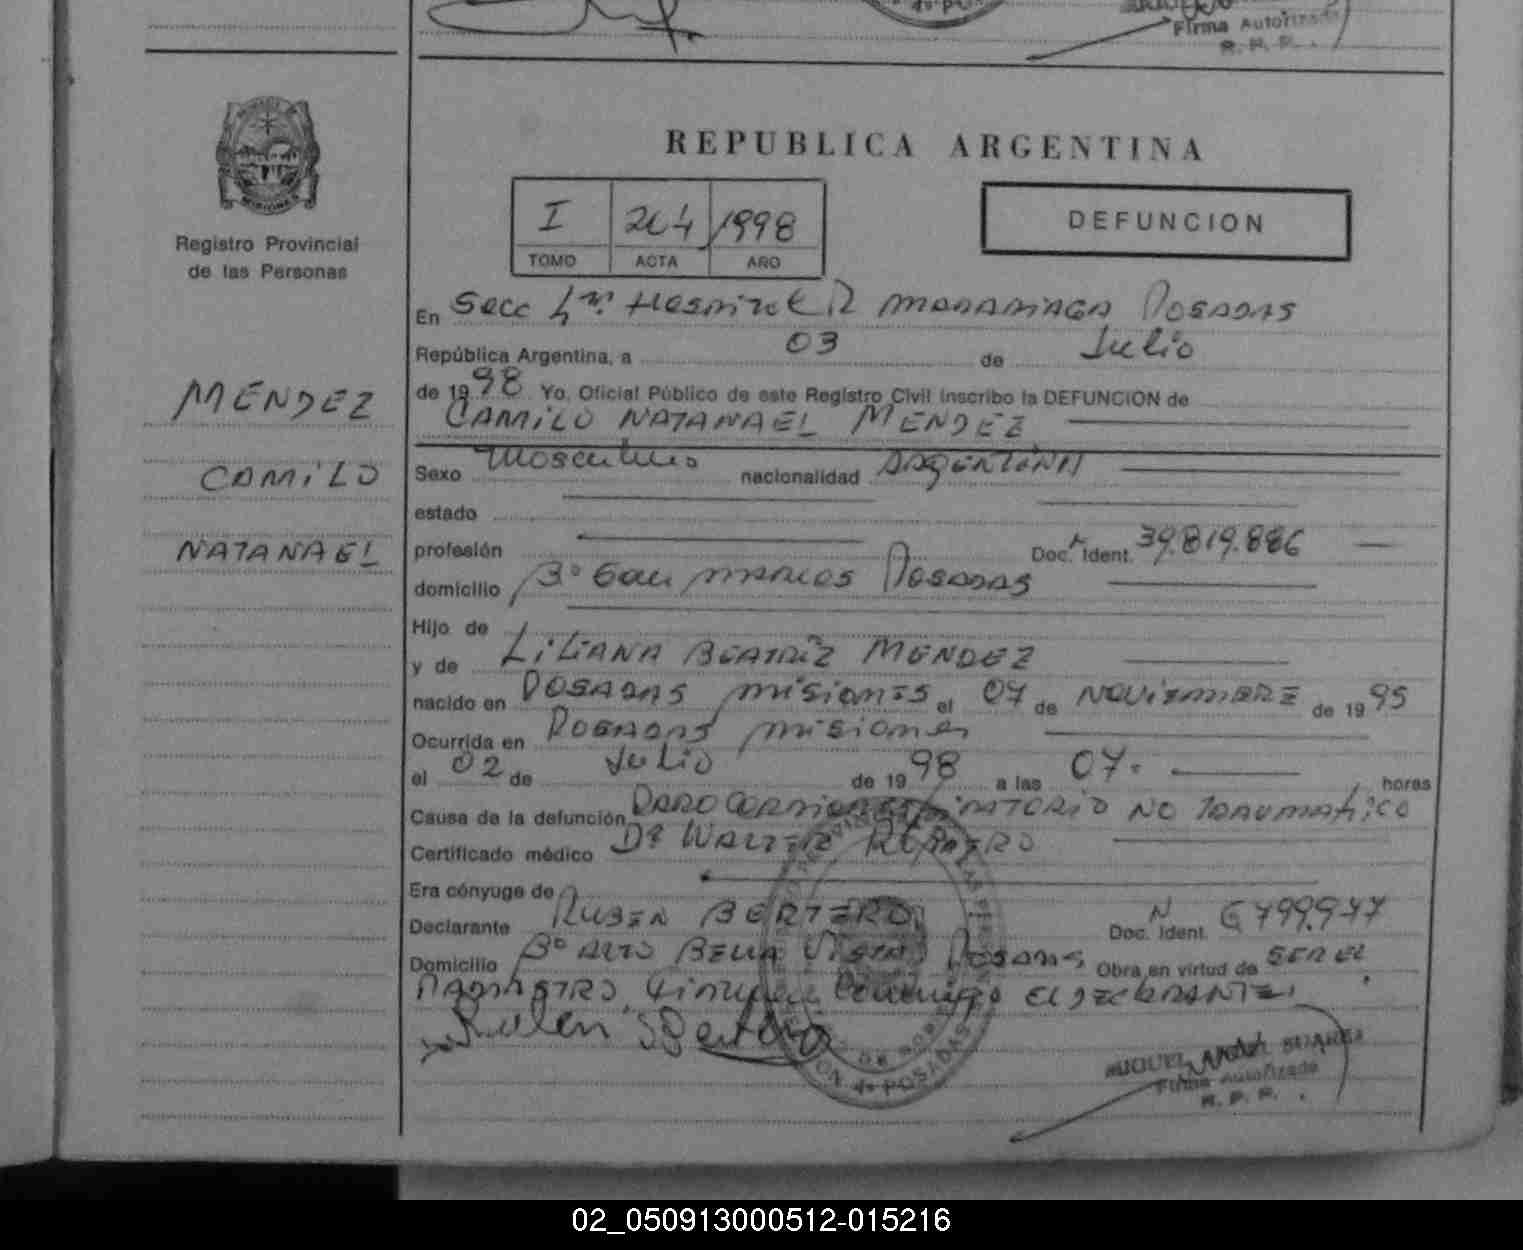 Firma Autorizada
R. P. P.
MISIONES
Registro Provincial
de las Personas
MENDEZ
CAMILO
NATANAEL
REPUBLICA ARGENTINA
I 204 1998
TOMO ACTA AÑO
DEFUNCION
En Secc 4ta. Hospital R MADARIAGA POSADAS
República Argentina, a 03 de Julio
de 1998 Yo, Oficial Público de este Registro Civil inscribo la DEFUNCION de
CAMILO NATANAEL MENDEZ
Sexo Masculino nacionalidad ARGENTINA
estado
profesión Doc. Ident. 39.819.886
domicilio Bº San MARCOS POSADAS
Hijo de
y de LILIANA BEATRIZ MENDEZ
nacido en POSADAS MISIONES el 07 de NOVIEMBRE de 1995
Ocurrida en POSADAS MISIONES
el 02 de Julio de 1998 a las 07. horas
Causa de la defunción PARO CARDIORESPIRATORIO NO TRAUMATICO
Certificado médico Dr WALTER ROMERO
Era cónyuge de
Declarante RUBEN BERTERO Doc. Ident. 6799.977
Domicilio Bº ALTO BELLA VISTA POSADAS Obra en virtud de SER EL
PADRASTRO, EL DECLARANTE.
Ruben Bertero
MIGUEL SUAREZ
Firma Autorizada
R. P. P.
POSADAS
02_050913000512-015216